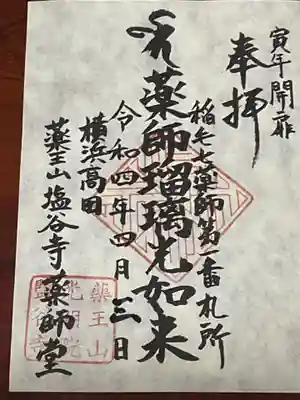 寅年開扉
奉拝
稲毛七薬師第一番札所
薬師瑠璃光如来
令和四年四月三日
横浜高田
薬王山塩谷寺薬師堂
薬王山
光明院
塩谷寺